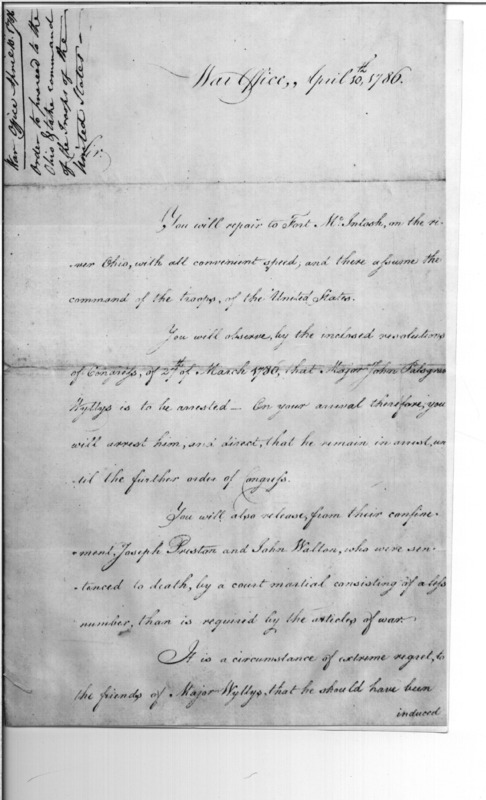 War Office April 10. 1786
Order to proceed to the
Ohio & take command
of the Troops of the
United States—
War Office,, April 10th, 1786.
You will repair to Fort Mc Intosh, on the ri-
-ver Ohio, with all convenient speed; and there assume the
command of the troops, of the United States.
You will observe, by the inclosed resolutions
of Congress, of 2d of March 1786, that Major John Palsgrave
Wyllys is to be arrested— On your arrival therefore, you
will arrest him, and direct, that he remain in arrest, un
-til the further order of Congress.
You will also release, from their confine-
-ment, Joseph Preston and John Walton, who were sen-
-tenced to death, by a court martial consisting of a less
number, than is required by the articles of war.
It is a circumstance of extreme regret, to
the friends of Major Wyllys, that he should have been
induced